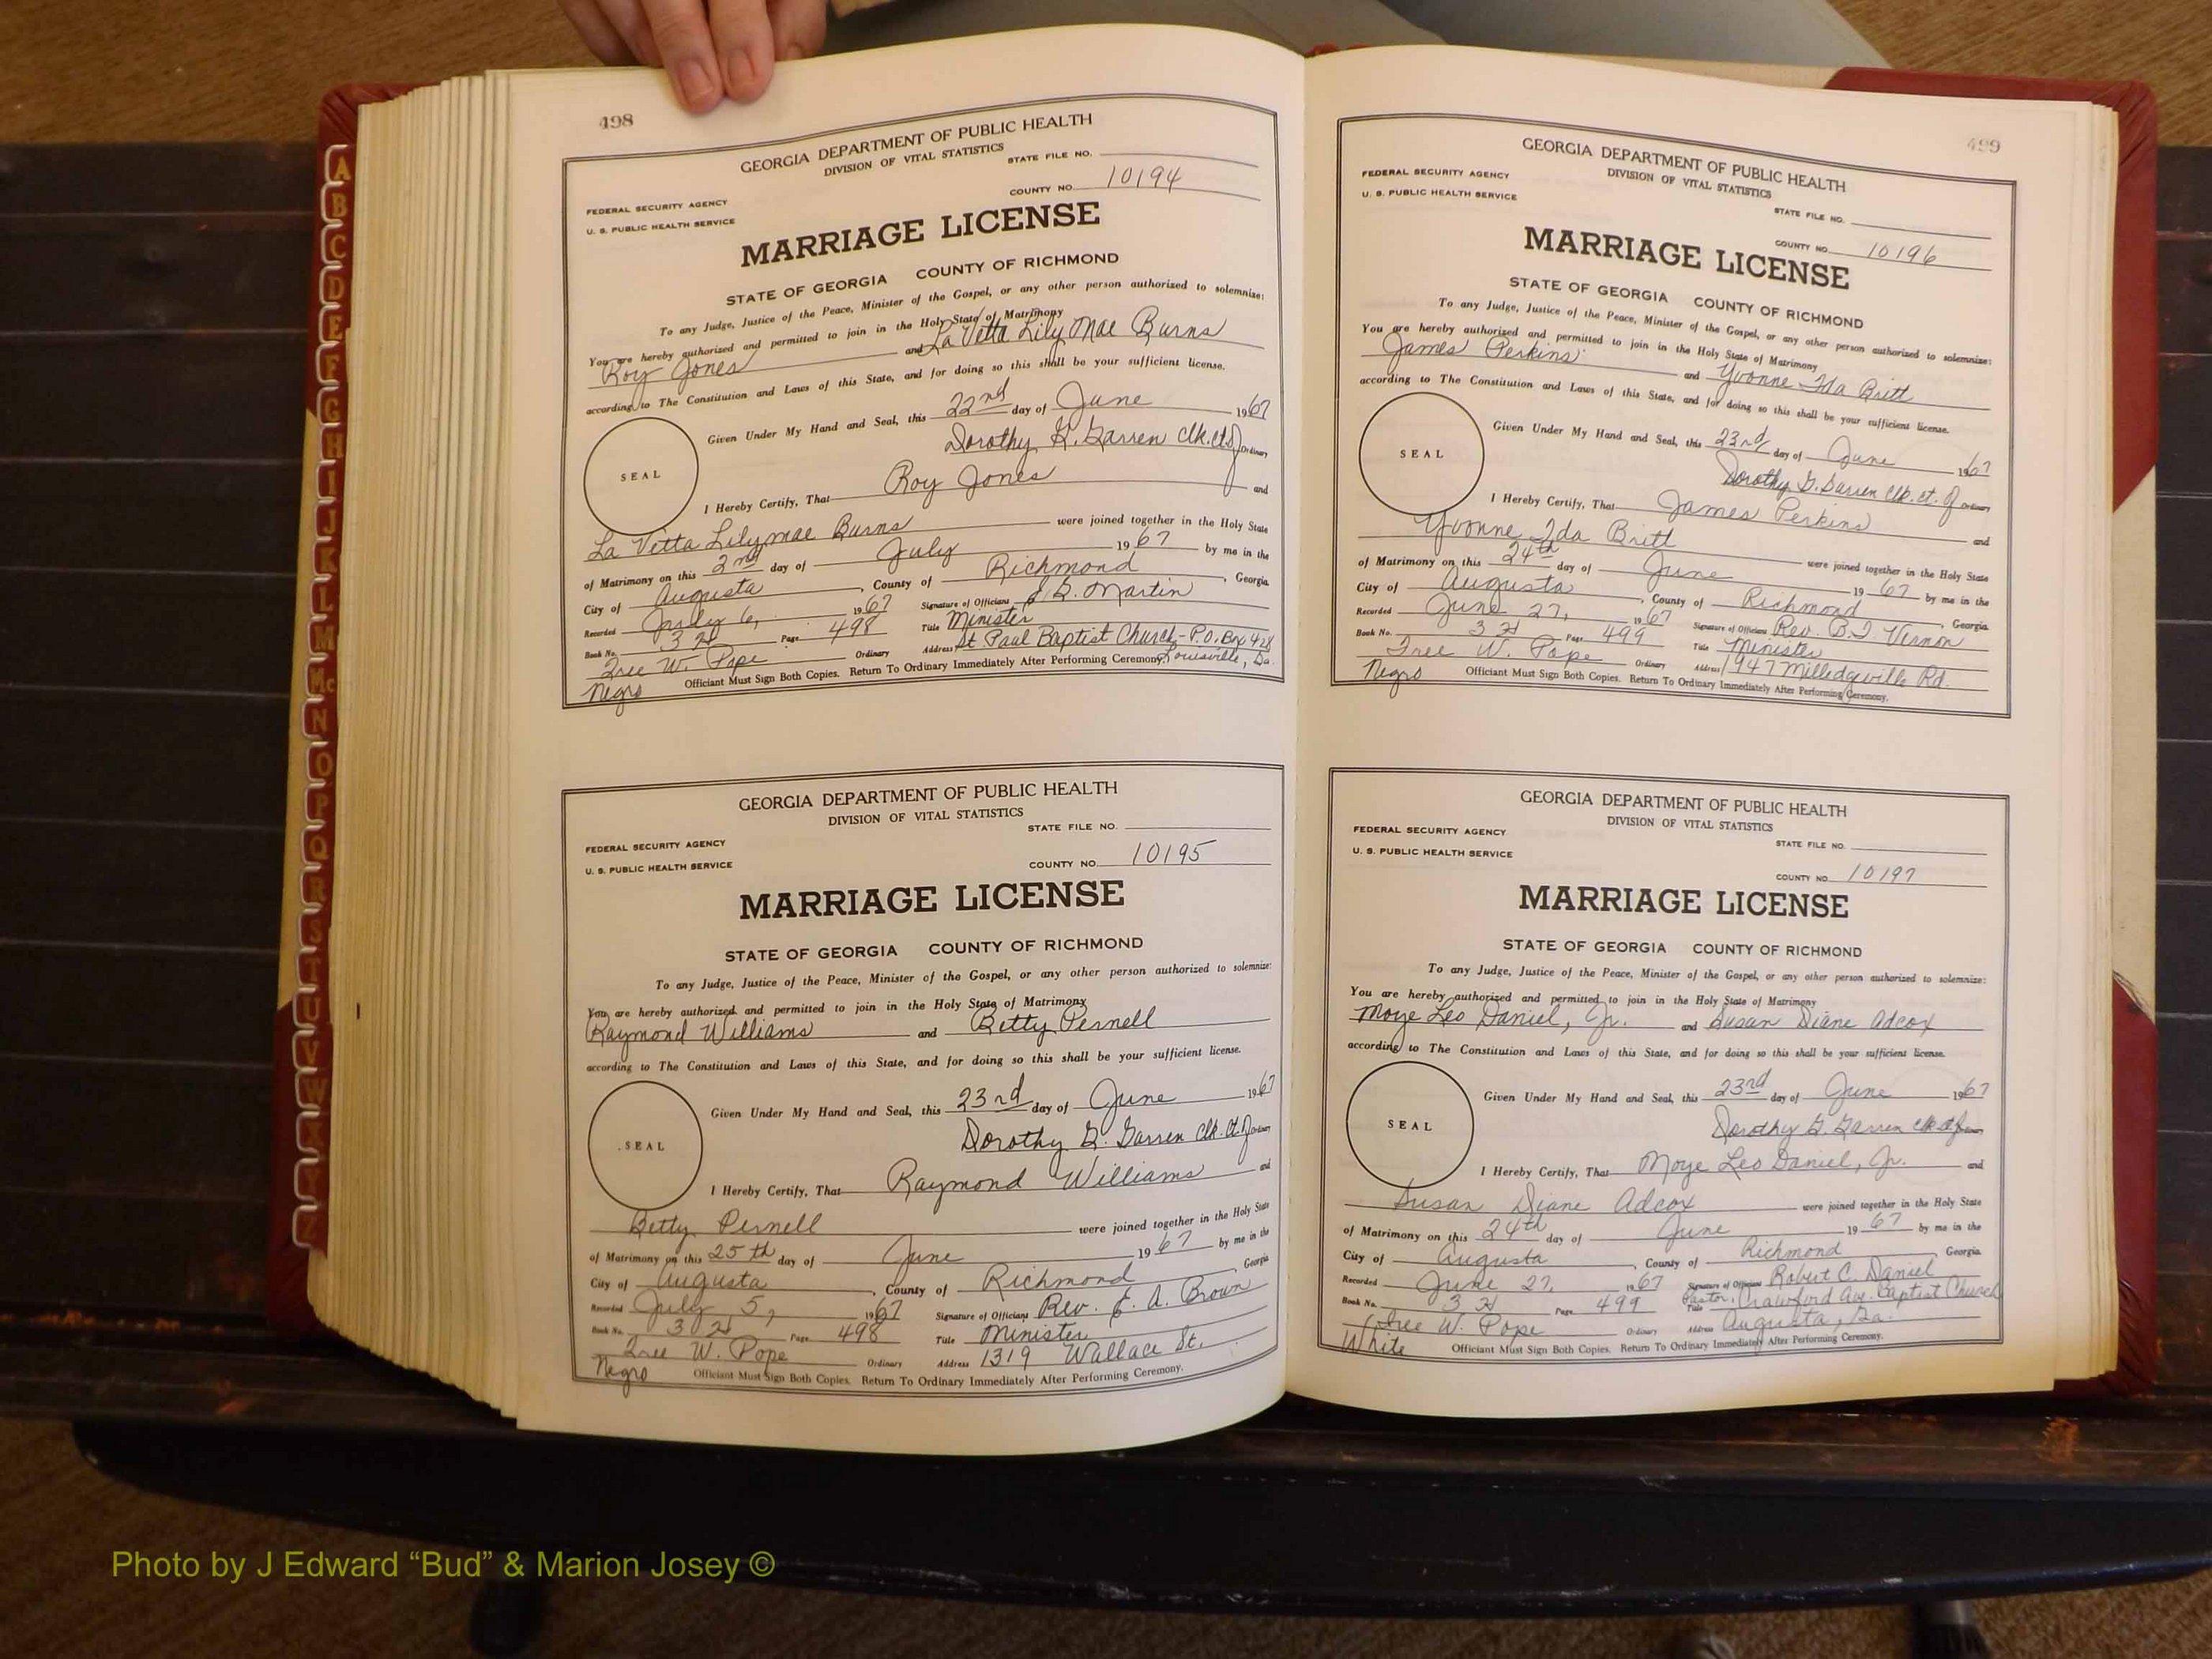 A
B
C
D
E
F
G
H
I
J
K
L
M
Mc
N
O
P
Q
R
S
T
U
V
W
Z
498
GEORGIA DEPARTMENT OF PUBLIC HEALTH
DIVISION OF VITAL STATISTICS
STATE FILE NO.
FEDERAL SECURITY AGENCY
COUNTY NO. 10194
U. S. PUBLIC HEALTH SERVICE
MARRIAGE LICENSE
STATE OF GEORGIA COUNTY OF RICHMOND
To any Judge, Justice of the Peace, Minister of the Gospel, or any other person authorized to solemnize:
You are hereby authorized and permitted to join in the Holy State of Matrimony
Roy Jones and La Vetta Lily Mae Burns
according to The Constitution and Laws of this State, and for doing so this shall be your sufficient license.
Given Under My Hand and Seal, this 22nd day of June 1967
Dorothy G. Garren Clk. Ct. of Ordinary
SEAL
I Hereby Certify, That Roy Jones and
La Vetta Lilymae Burns were joined together in the Holy State
of Matrimony on this 2nd day of July 1967 by me in the
City of Augusta, County of Richmond, Georgia
Recorded July 6, 1967 Signature of Officiant Martin
Book No. Page 498 Title Minister
Tree W. Pope Ordinary Address St Paul Baptist Church - P.O. Box 428
Louisville, Ga.
Negro Officiant Must Sign Both Copies. Return To Ordinary Immediately After Performing Ceremony.
GEORGIA DEPARTMENT OF PUBLIC HEALTH
DIVISION OF VITAL STATISTICS
STATE FILE NO.
FEDERAL SECURITY AGENCY
U. S. PUBLIC HEALTH SERVICE
COUNTY NO. 10195
MARRIAGE LICENSE
STATE OF GEORGIA COUNTY OF RICHMOND
To any Judge, Justice of the Peace, Minister of the Gospel, or any other person authorized to solemnize:
You are hereby authorized and permitted to join in the Holy State of Matrimony
Raymond Williams and Betty Pernell
according to The Constitution and Laws of this State, and for doing so this shall be your sufficient license.
Given Under My Hand and Seal, this 23rd day of June 1967
Dorothy G. Garren Clk. Ct. of Ordinary
SEAL
I Hereby Certify, That Raymond Williams and
Betty Pernell were joined together in the Holy State
of Matrimony on this 25th day of June 1967 by me in the
City of Augusta, County of Richmond Georgia
Recorded July 5, 1967 Signature of Officiant Rev. E. A. Brown
Book No. Page 498 Title Minister
Tree W. Pope Ordinary Address 1319 Wallace St.
Negro Officiant Must Sign Both Copies. Return To Ordinary Immediately After Performing Ceremony.
499
GEORGIA DEPARTMENT OF PUBLIC HEALTH
DIVISION OF VITAL STATISTICS
FEDERAL SECURITY AGENCY
U. S. PUBLIC HEALTH SERVICE
STATE FILE NO.
COUNTY NO. 10196
MARRIAGE LICENSE
STATE OF GEORGIA COUNTY OF RICHMOND
To any Judge, Justice of the Peace, Minister of the Gospel, or any other person authorized to solemnize:
You are hereby authorized and permitted to join in the Holy State of Matrimony
James Perkins and Yvonne Ida Britt
according to The Constitution and Laws of this State, and for doing so this shall be your sufficient license.
Given Under My Hand and Seal, this 23rd day of June 1967
Dorothy G. Garren Clk. Ct. of Ordinary
SEAL
I Hereby Certify, That James Perkins and
Yvonne Ida Britt were joined together in the Holy State
of Matrimony on this 24th day of June 1967 by me in the
City of Augusta, County of Richmond, Georgia
Recorded June 27, 1967 Signature of Officiant Rev. Vernon
Book No. Page 499 Title Minister
Tree W. Pope Ordinary Address 1947 Milledgeville Rd.
Negro Officiant Must Sign Both Copies. Return To Ordinary Immediately After Performing Ceremony.
GEORGIA DEPARTMENT OF PUBLIC HEALTH
DIVISION OF VITAL STATISTICS
FEDERAL SECURITY AGENCY
STATE FILE NO.
U. S. PUBLIC HEALTH SERVICE
COUNTY NO. 10197
MARRIAGE LICENSE
STATE OF GEORGIA COUNTY OF RICHMOND
To any Judge, Justice of the Peace, Minister of the Gospel, or any other person authorized to solemnize:
You are hereby authorized and permitted to join in the Holy State of Matrimony
Moye Leo Daniel, Jr. and Susan Diane Adcox
according to The Constitution and Laws of this State, and for doing so this shall be your sufficient license.
Given Under My Hand and Seal, this 23rd day of June 1967
Dorothy G. Garren Clk. Ct. of Ordinary
SEAL
I Hereby Certify, That Moye Leo Daniel, Jr. and
Susan Diane Adcox were joined together in the Holy State
of Matrimony on this 24th day of June 1967 by me in the
City of Augusta, County of Richmond, Georgia
Recorded June 27, 1967 Signature of Officiant Robert C. Daniel
Book No. Page 499 Title Pastor, Crawford Ave. Baptist Church
Tree W. Pope Ordinary Address Augusta, Ga.
White Officiant Must Sign Both Copies. Return To Ordinary Immediately After Performing Ceremony.
Photo by J Edward “Bud” & Marion Josey ©